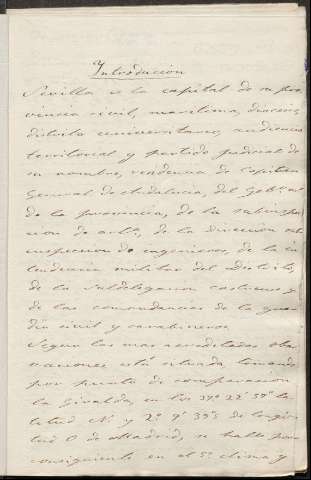 Introducion
Sevilla es la capital de su pro
vincia civil, maritima, diocesis,
distrito universitario, audiencia
territorial y partido judicial de
su nombre, residencia de Capitan
General de Andalucia, del Gobr.
de la provincia, de la subinspec
cion de artª, de la direccion sub
inspeccion de ingenieros, de la in
tendencia militar del distrito,
de la subdelegacion castrense y
de las comandancias de la guar
dia civil y carabineros
Segun las mas acreditadas obser
vaciones está situada tomando
por punto de comparacion
la Giralda, en los 37º 22' 35" la
titud N. y 2º 9' 35" de longi
tud O de Madrid, se halla por
consiguiente en el 5º clima y